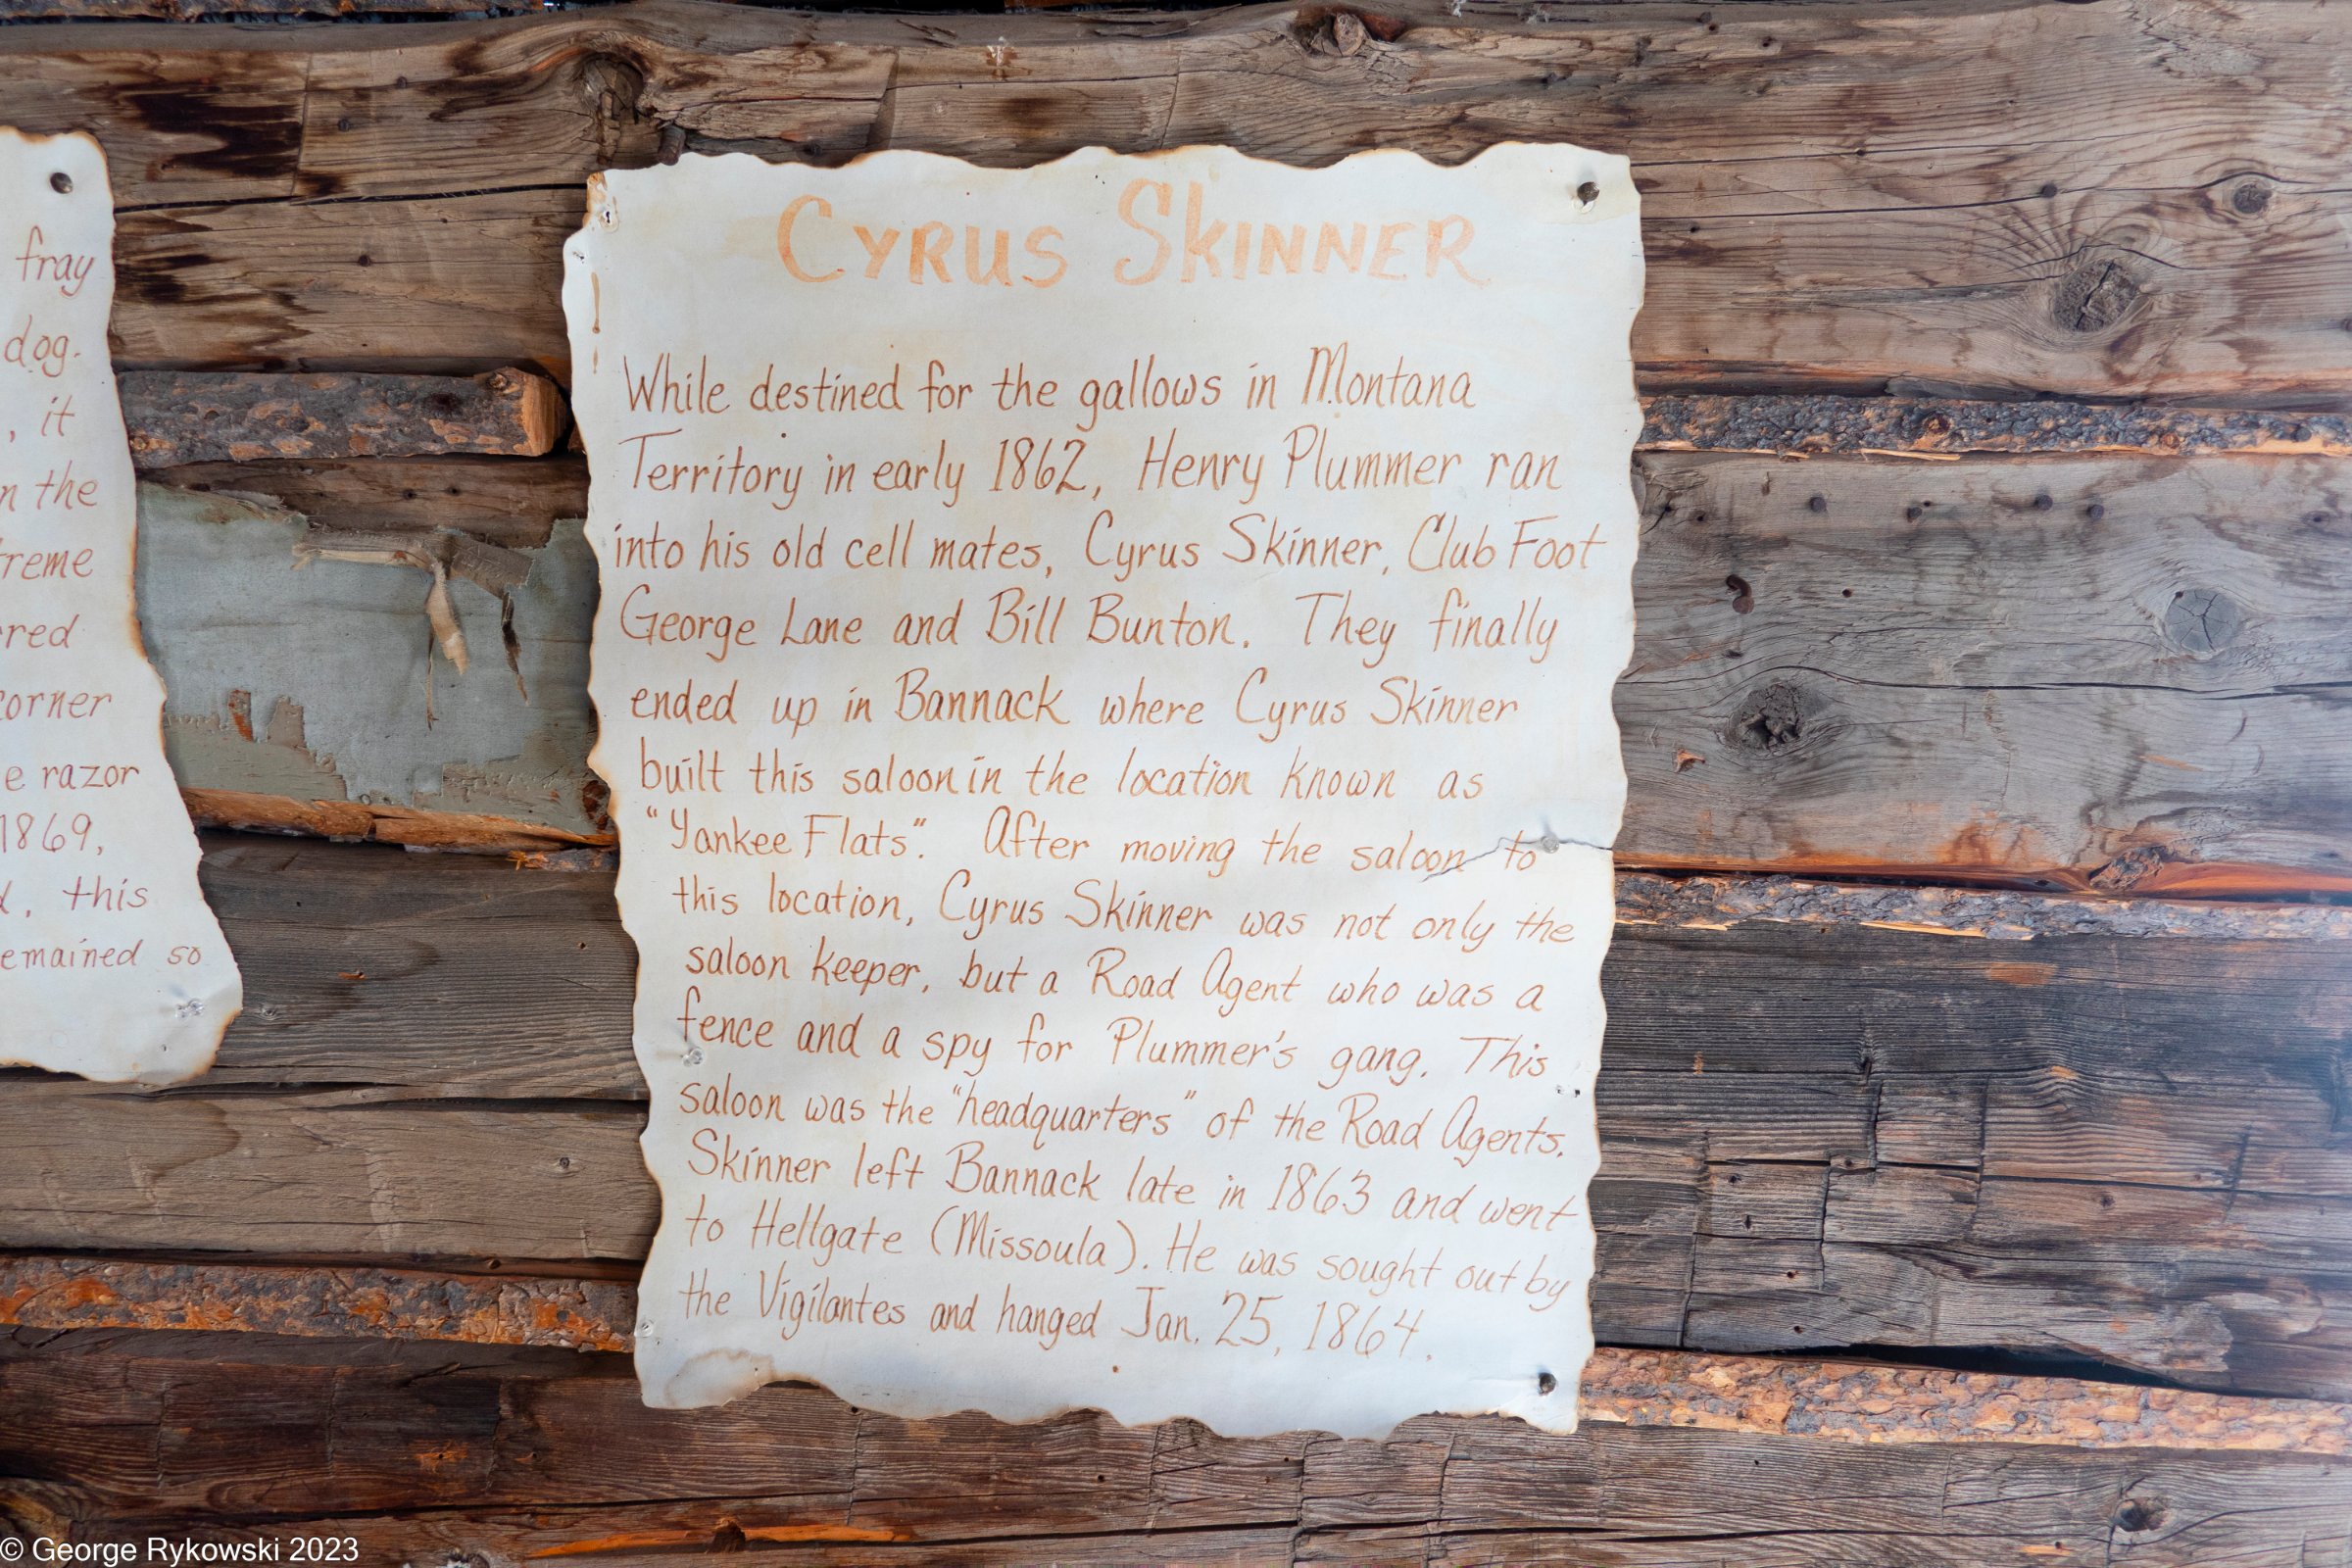 fray
dog.
, it
n the
reme
red
corner
e razor
1869,
, this
emained so
CYRUS SKINNER
While destined for the gallows in Montana
Territory in early 1862, Henry Plummer ran
into his old cell mates, Cyrus Skinner, Club Foot
George Lane and Bill Bunton. They finally
ended up in Bannack where Cyrus Skinner
built this saloon in the location known as
"Yankee Flats". After moving the saloon to
this location, Cyrus Skinner was not only the
saloon keeper, but a Road Agent who was a
fence and a spy for Plummer's gang. This
saloon was the "headquarters" of the Road Agents.
Skinner left Bannack late in 1863 and went
to Hellgate (Missoula). He was sought out by
the Vigilantes and hanged Jan. 25, 1864.
© George Rykowski 2023